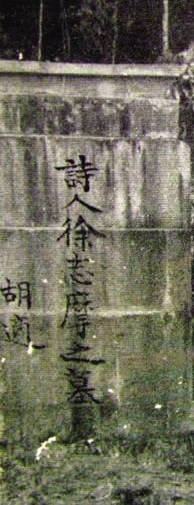 詩人徐志摩之墓
胡適